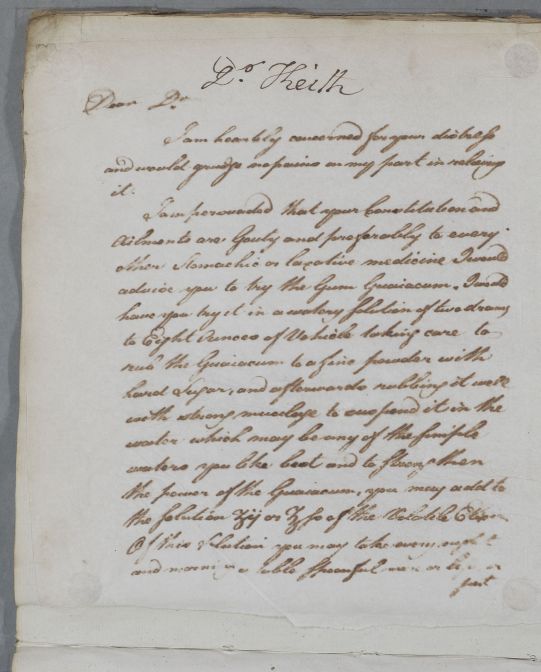 Dr. Keith
Dear Dr.
I am heartily concerned for your distress
and would grudge no pains on my part in relieving
it.
I am perswaded that your Constitution and
Ailments are Gouty and preferably to every
other Stomachic or laxative medicine I would
advise you to try the Gum Guaiacum. I would
have you try it in a watery solution of two drams
to Eight Ounces of Vehicle taking care to
rub the Guaiacum to a fine powder with
hard Sugar, and afterwards rubbing it well
with strong mucilage to suspend it in the
water which may be any of the simple
waters you like best and to strengthen
the power of the Guaiacum, you may add to
the solution ʒij or ʒ of the Volatile
Of this solution you may take every night
and morning a table spoonful or
just